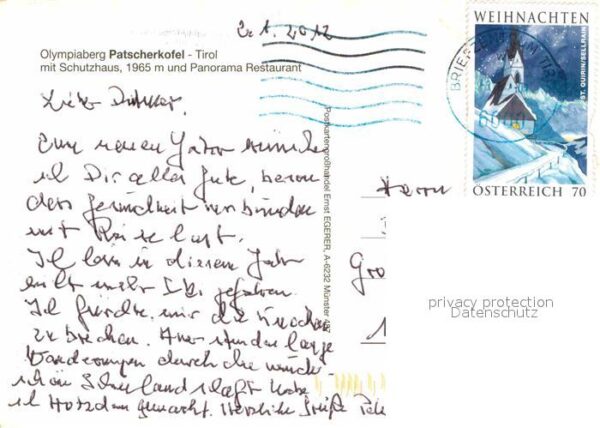 2. 1. 2012
WEIHNACHTEN
ST. QUIRIN/SELLRAIN
BRIEFZENTRUM TIROL
6000
ÖSTERREICH 70
Olympiaberg Patscherkofel - Tirol
mit Schutzhaus, 1965 m und Panorama Restaurant
Lieber
Zum neuen Jahr wünsche
ich Dir alles Gute, besonders
Gesundheit verbunden
mit Reiselust.
Ich bin in diesem Jahr
nicht mehr Ski gefahren.
Ich fürchte mir die Knochen
zu brechen. Aber stundenlange
Wanderungen durch die wunder-
schöne Schneelandschaft habe
ich trotzdem gemacht. Herzliche Grüße
Postkartengroßhandel Ernst EGERER, A-6232 Münster 487
Herrn
privacy protection
Datenschutz